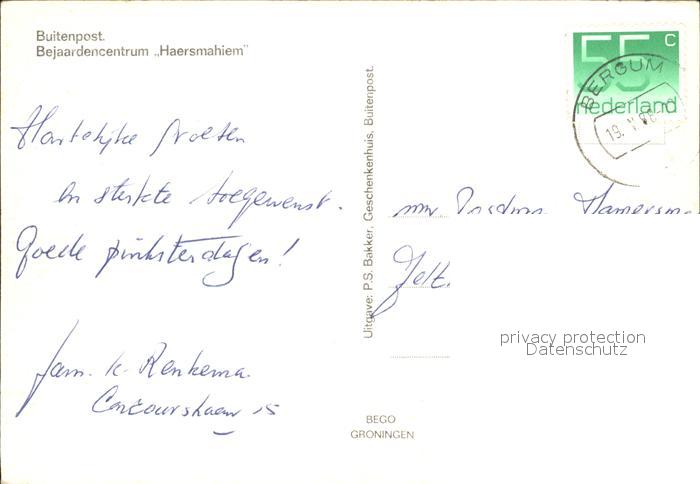 Buitenpost.
Bejaardencentrum „Haersmahiem”
Hartelijke groeten
en sterkte toegewenst.
Goede pinksterdagen!
fam. K. Renkema
15
Uitgave: P.S. Bakker, Geschenkenhuis, Buitenpost.
BEGO
GRONINGEN
55 c
nederland
BERGUM
19.
privacy protection
Datenschutz